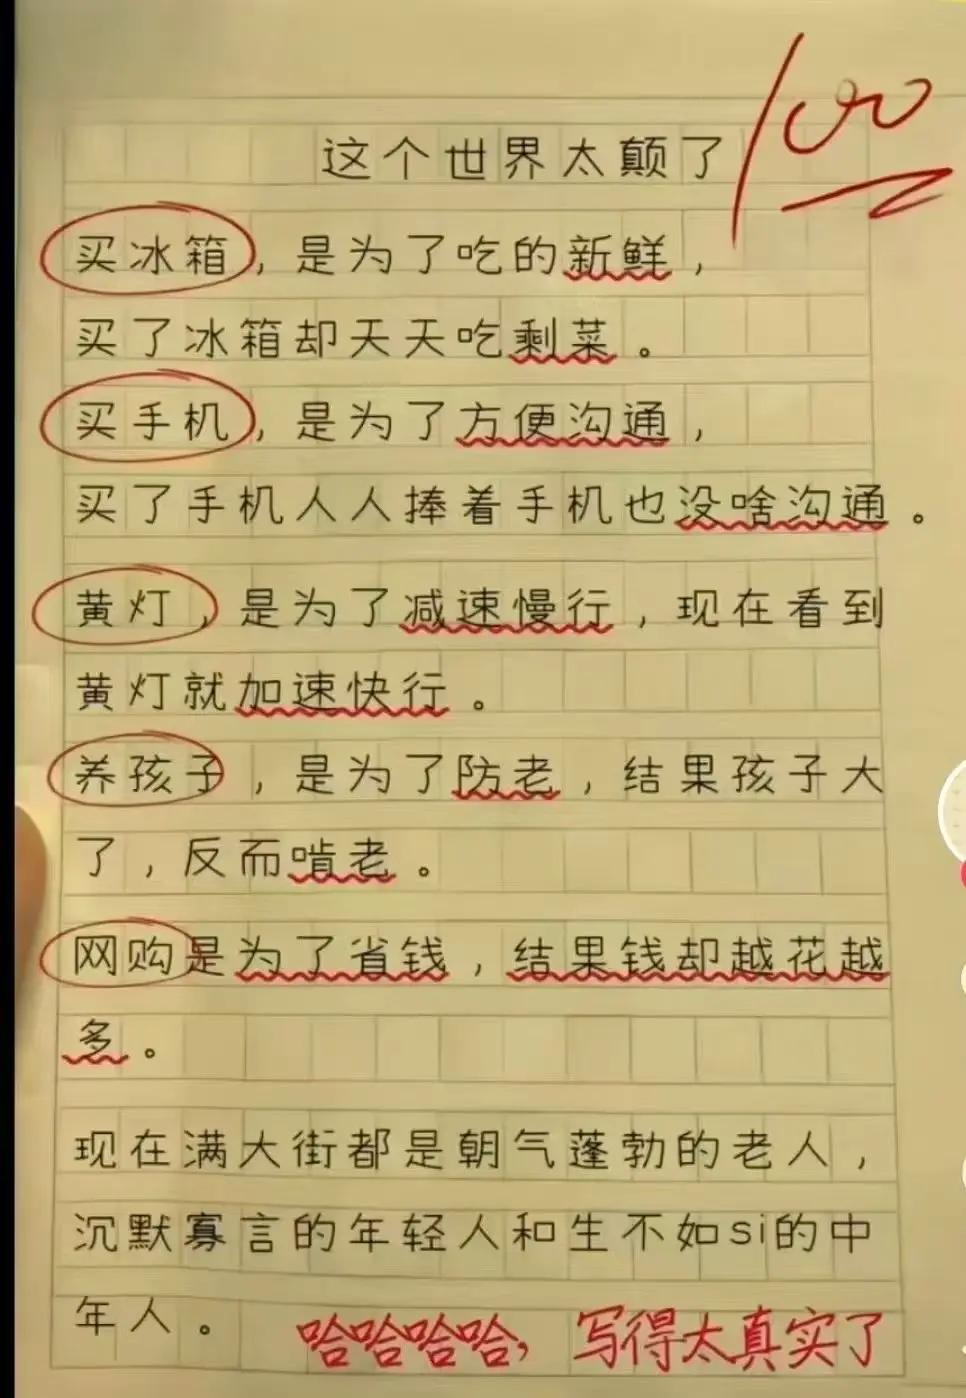 100
这个世界太颠了
买冰箱，是为了吃的新鲜，
买了冰箱却天天吃剩菜。
买手机，是为了方便沟通，
买了手机人人捧着手机也没啥沟通。
黄灯，是为了减速慢行，现在看到
黄灯就加速快行。
养孩子，是为了防老，结果孩子大
了，反而啃老。
网购是为了省钱，结果钱却越花越
多。
现在满大街都是朝气蓬勃的老人，
沉默寡言的年轻人和生不如si的中
年人。
哈哈哈哈，写得太真实了